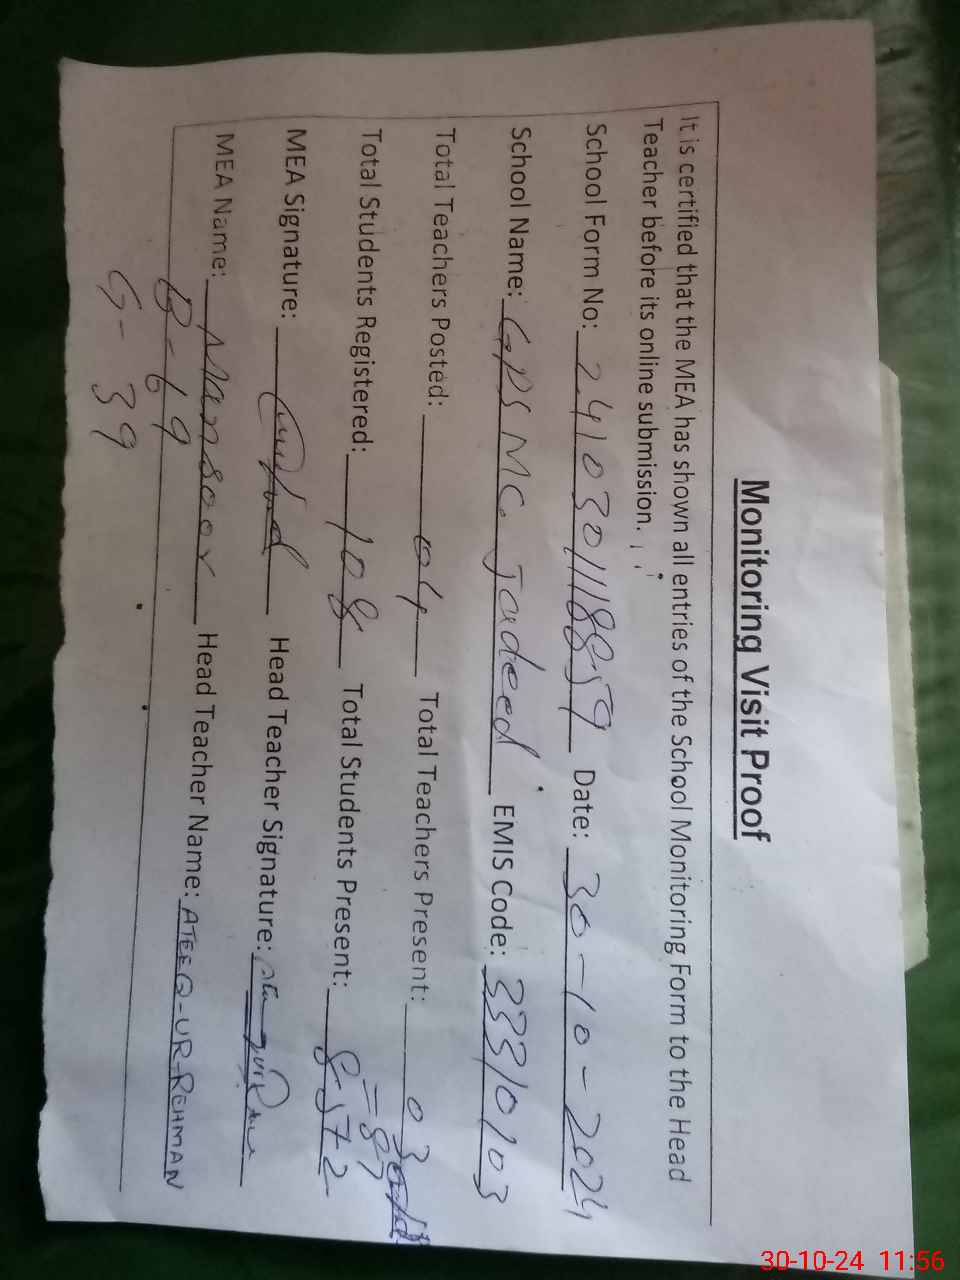 Monitoring Visit Proof
It is certified that the MEA has shown all entries of the School Monitoring Form to the Head
Teacher before its online submission.
School Form No: 241030111889 Date: 30-10-2024
School Name: GPS MC. Jadeed EMIS Code: 33310103
Total Teachers Posted: 04 Total Teachers Present: 03
= 87
Total Students Registered: 108 Total Students Present: 85+2
MEA Signature: Head Teacher Signature:
MEA Name: Mansoor Head Teacher Name: ATEEQ-UR-REHMAN
B-69
G-39
30-10-24 11:56